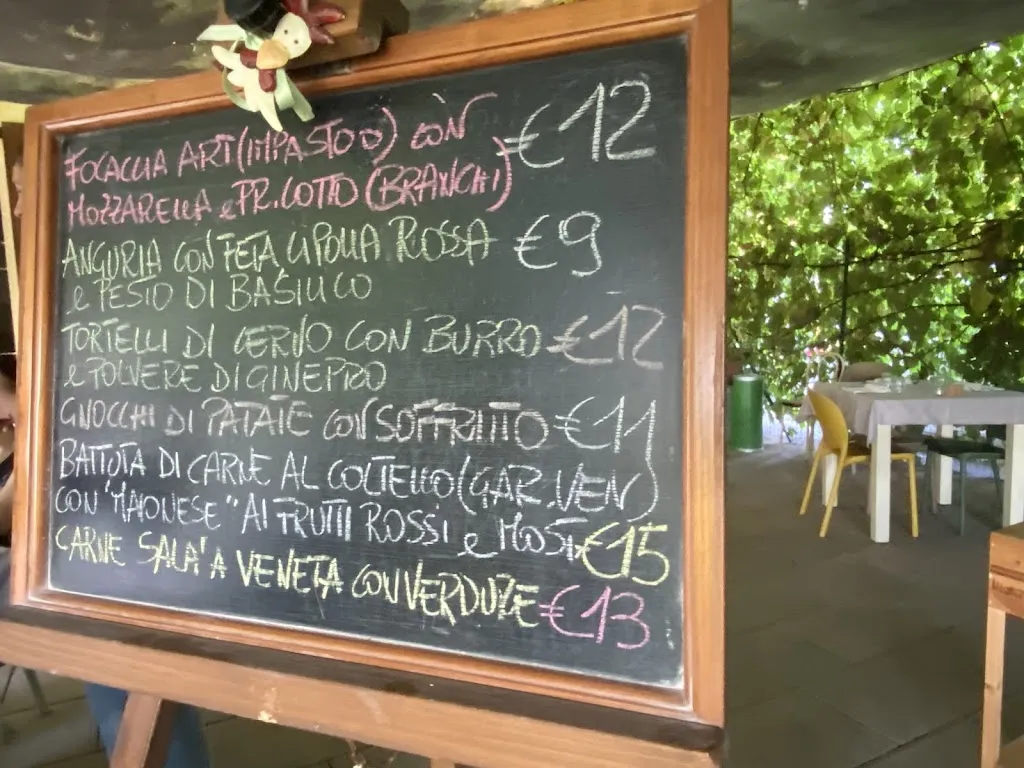 FOCACCIA ART(IMPASTO D) CON €12
MOZZARELLA e PR.COTTO (BRANCHI)
ANGURIA CON FETA CIPOLLA ROSSA €9
e PESTO DI BASILICO
TORTELLI DI CERVO CON BURRO €12
e POLVERE DI GINEPRO
GNOCCHI DI PATATE CON SOFFRITTO €11
BATTUTA DI CARNE AL COLTELLO (GAR.VEN)
CON "MAIONESE" AI FRUTTI ROSSI e MOST €15
CARNE SALA' A VENETA CON VERDURE €13